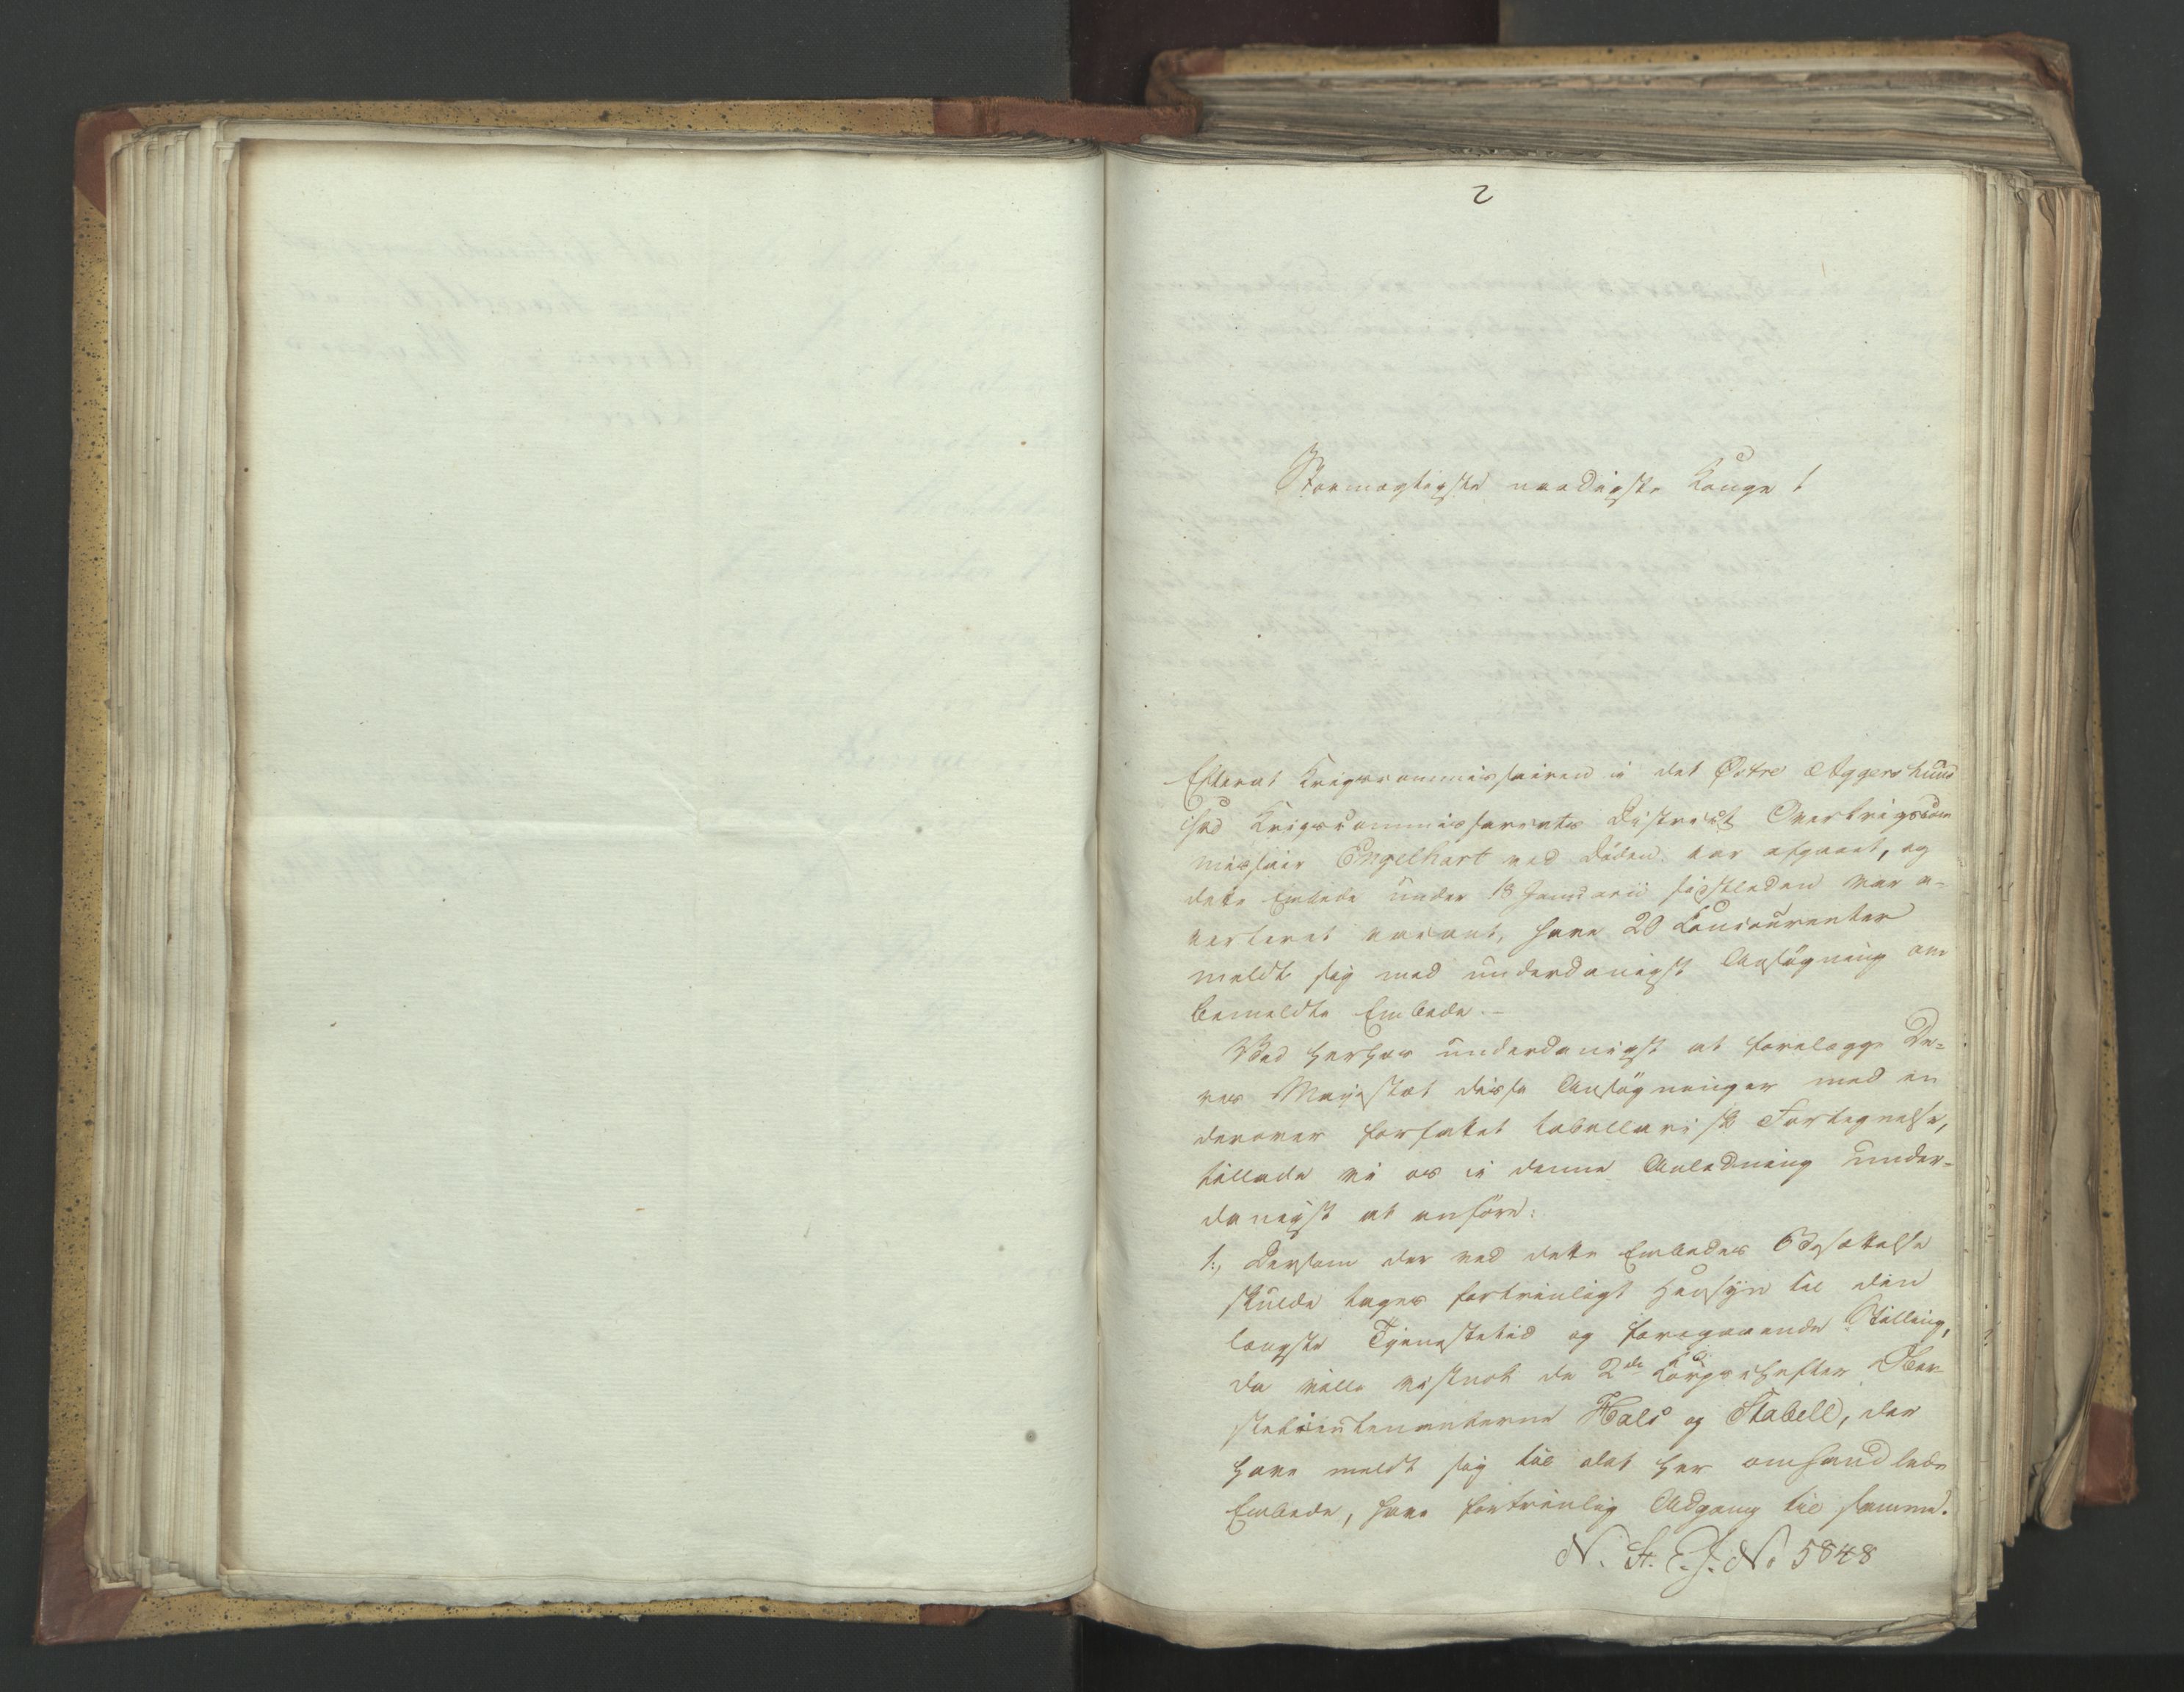 2
Stormægtigste naadigste Konge!
Efterat Krigscommissairen i det Östre Aggershuus
iske Krigscommissariats District Overkrigscom
missair Engelhart ved Döden var afgaaet, og
dette Embede under 18 Januarii sidstleden var a-
verteret vacant, have 20 Concurrenter
meldt sig med underdanigst Ansögning om
bemeldte Embede.-
Ved herhos underdanigst at forelægge De-
res Majestæt disse Ansögninger med en
derover forfattet tabellarisk Fortegnelse,
tillade vi os i denne Anledning under-
danigst at anföre:
1., Dersom der ved dette Embedes Besættelse
skulde tages fortrinligt Hensyn til den
længste Tjenestetid og foregaaende Stilling,
da ville vistnok de 2de Corpschefter Ober-
stlieutenanterne Hals og Stabell, der
have meldt sig til det her omhandlede
Embede, have fortrinlig Adgang til samme.
N. St. E. J. No 5848